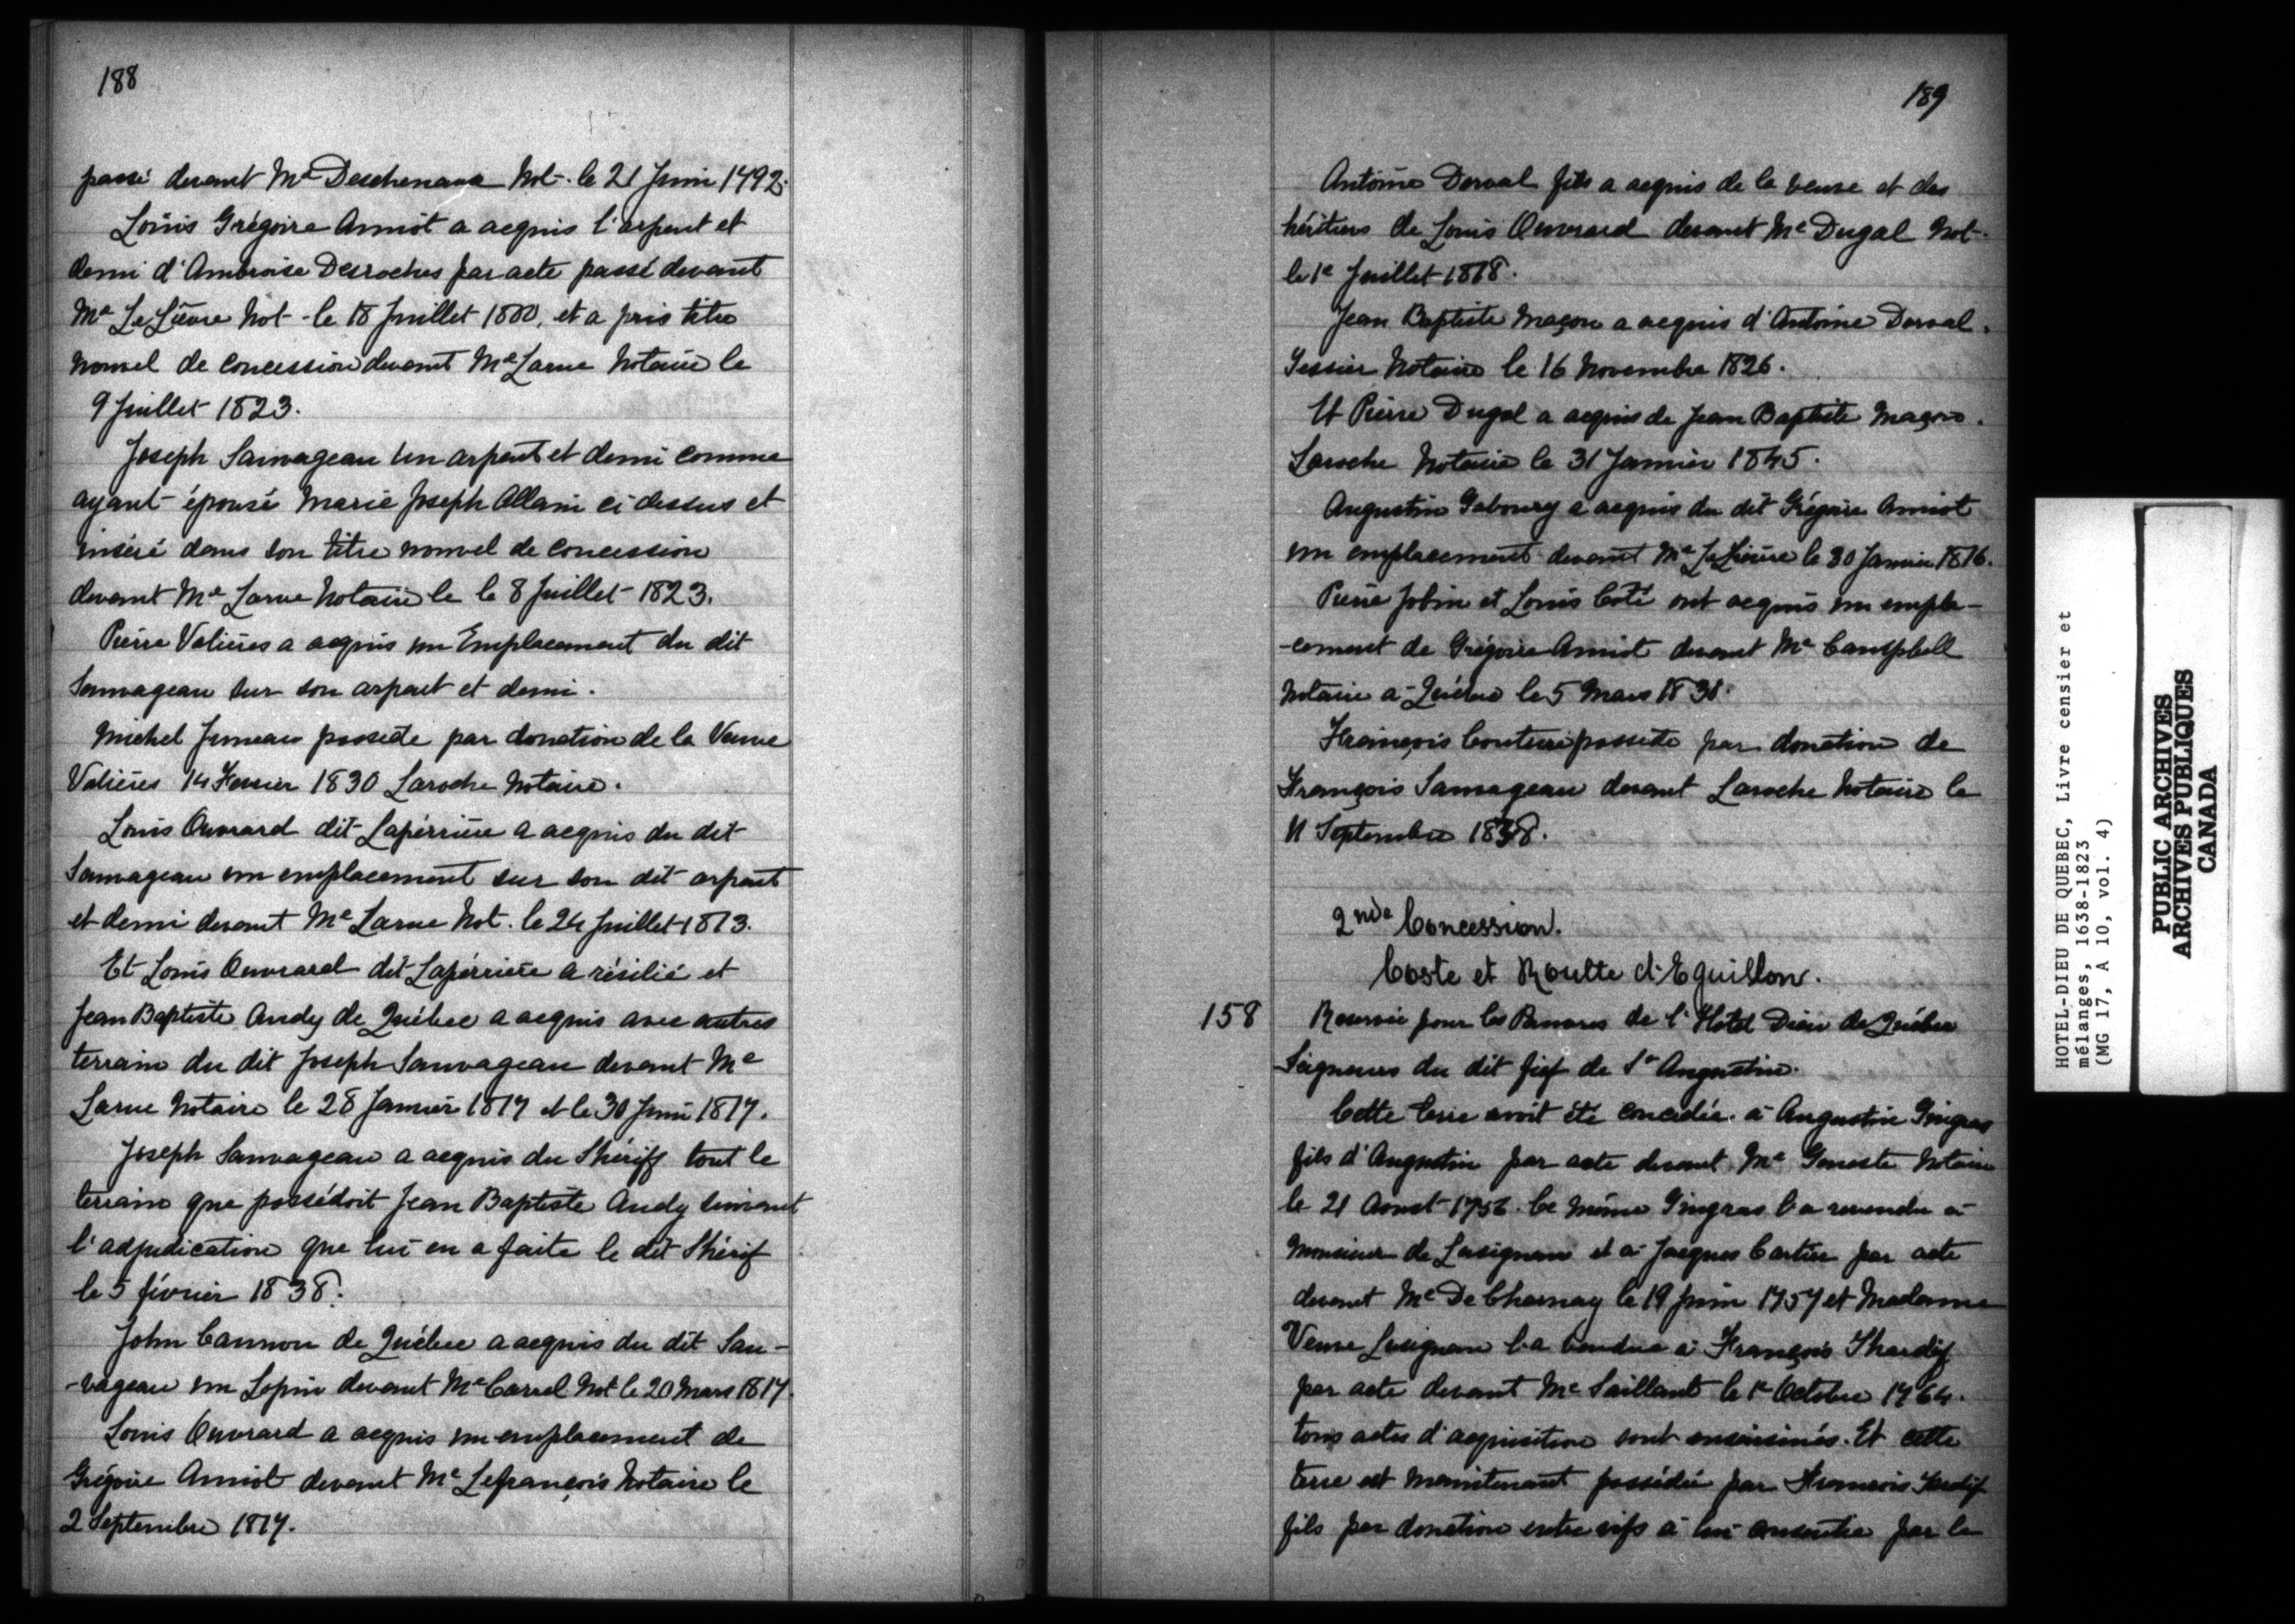 188
passé devant Me Deschenaux Not. le 21 Juin 1792.
Louis Grégoire Amiot a acquis l'arpent et
demi d'Ambroise Desroches par acte passé devant
Me Le Lièvre Not. le 18 Juillet 1800, et a pris titre
nouvel de concession devant Me Larue Notaire le
9 Juillet 1823.
Joseph Sauvageau un arpent et demi comme
ayant épousé Marie Joseph Allain ci dessus et
inséré dans son titre nouvel de concession
devant Me Larue Notaire le le 8 Juillet 1823.
Pierre Valières a acquis un Emplacement du dit
Sauvageau sur son arpent et demi.
Michel Juneau possede par donation de la Veuve
Valières 14 Fevrier 1830 Laroche Notaire.
Louis Ouvrard dit Lapérrière a acquis du dit
Sauvageau un emplacement sur son dit arpent
et demi devant Me Larue Not. le 24 Juillet 1813.
Et Louis Ouvrard dit Lapérrière a résilié et
Jean Baptiste Andy de Québec a acquis avec autres
terrain du dit Joseph Sauvageau devant Me
Larue Notaire le 28 Janvier 1817 et le 30 Juin 1817.
Joseph Sauvageau a acquis du Shériff tout le
terrain que possédoit Jean Baptiste Andy suivant
l'adjudication que lui en a faite le dit Shérif
le 5 février 1838.
John Cannon de Québec a acquis du dit Sau-
-vageau un Lopin devant Me Carrel Not le 20 Mars 1817.
Louis Ouvrard a acquis un emplacement de
Grégoire Amiot devant Me Lefrançois Notaire le
2 Septembre 1817.
189
Antoine Derval fils a acquis de la veuve et des
héritiers de Louis Ouvrard devant Me Dugal Not.
le 1e Juillet 1818.
Jean Baptiste Maçon a acquis d'Antoine Derval.
Tessier Notaire le 16 Novembre 1826.
Et Pierre Dugal a acquis de Jean Baptiste Maçon.
Laroche Notaire le 31 Janvier 1845.
Augustin Gaboury a acquis du dit Grégoire Amiot
un emplacement devant Me Le Lièvre le 30 Janvier 1816.
Pierre Jobin et Louis Coté ont acquis un empla-
-cement de Grégoire Amiot devant Me Campbell
Notaire a Québec le 5 Mars 1838.
François Couture possede par donation de
François Sauvageau devant Laroche Notaire le
11 Septembre 1838.
2nde Concession.
Coste et Roulte d'Eguillon.
158 Reservée pour les Pauvres de l'Hotel Dieu de Québec
Seigneurs du dit fief de St Augustin.
Cette terre avoit été concedée à Augustin Gingras
fils d'Augustin par acte devant Me Geneste Notaire
le 21 Aoust 1756. Ce même Gingras l'a revendu à
Monsieur de Lusignan et à Jacques Cartier par acte
devant Me De Charnay le 19 Juin 1757 et Madame
Veuve Lusignan l'a vendue à François Thardif
par acte devant Me Saillant le 1e Octobre 1764.
tous actes d'acquisition sont ensaisinés. Et cette
terre est maintenant possédée par François Tardif
fils par donation entre vifs à lui consentie par le
HOTEL-DIEU DE QUEBEC, Livre censier et
mélanges, 1638-1823
(MG 17, A 10, vol. 4)
PUBLIC ARCHIVES
ARCHIVES PUBLIQUES
CANADA